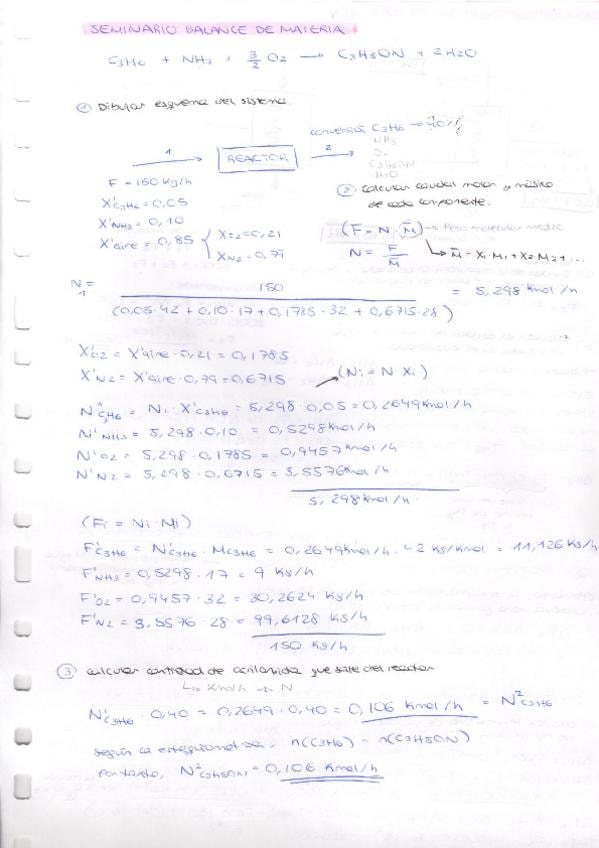 SEMINARIO BALANCE DE MATERIA
C3H6 + NH3 + 3/2 O2 → C3H3ON + 2H2O
① Dibujar esquema del sistema.
1
REACTOR
2
conversió C3H6 → 40%
NH3
O2
C3H3ON
H2O
F = 150 Kg/h
X'C3H6 = 0,05
X'NH3 = 0,10
X'aire = 0,85 { XO2 = 0,21
XN2 = 0,79
② calcular caudal molar y másico
de cada componente.
(F = N · M̄) → Peso molecular medio
N = F/M̄
↳ M̄ = X1·M1 + X2·M2 + ...
N1 = 150 / (0,05·42 + 0,10·17 + 0,1785·32 + 0,6715·28) = 5,298 Kmol/h
X'O2 = X'aire · 0,21 = 0,1785
X'N2 = X'aire · 0,79 = 0,6715
(Ni = N · Xi)
N¹C3H6 = N1 · X'C3H6 = 5,298 · 0,05 = 0,2649 Kmol/h
N'NH3 = 5,298 · 0,10 = 0,5298 Kmol/h
N'O2 = 5,298 · 0,1785 = 0,9457 Kmol/h
N'N2 = 5,298 · 0,6715 = 3,5576 Kmol/h
5,298 Kmol/h
(Fi = Ni · Mi)
F'C3H6 = N'C3H6 · MC3H6 = 0,2649 Kmol/h · 42 Kg/Kmol = 11,126 Kg/h
F'NH3 = 0,5298 · 17 = 9 Kg/h
F'O2 = 0,9457 · 32 = 30,2624 Kg/h
F'N2 = 3,5576 · 28 = 99,6128 Kg/h
150 Kg/h
③ calcular cantidad de que sale del reactor
↳ Kmol/h → N
N'C3H6 · 0,40 = 0,2649 · 0,40 = 0,106 Kmol/h = N²C3H6
según la n(C3H6) = n(C3H3ON)
Por tanto, N²C3H3ON = 0,106 Kmol/h